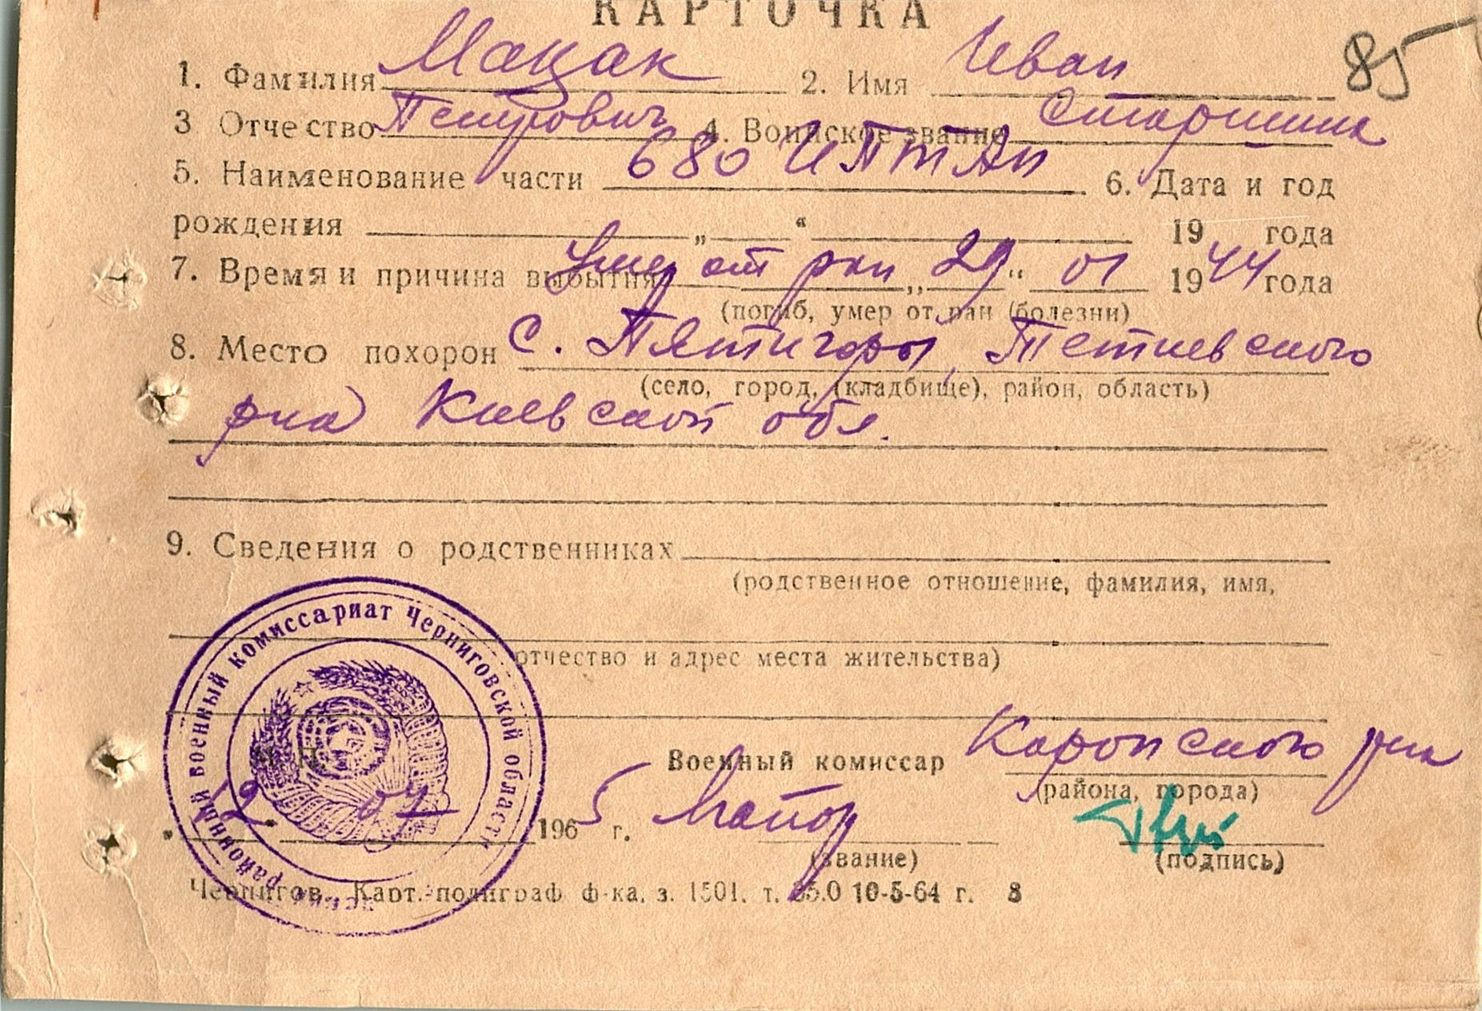 КАРТОЧКА
85
1. Фамилия Мацак 2. Имя Иван
3 Отчество Петрович 4. Воинское звание Старшина
5. Наименование части 680 ИПТАП 6. Дата и год
рождения „ “ 19 года
7. Время и причина выбытия Умер от ран „29“ 01 1944 года
(погиб, умер от ран (болезни)
8. Место похорон с. Пятигоры, Тетиевского
(село, город, (кладбище), район, область)
р-на Киевской обл.
9. Сведения о родственниках
(родственное отношение, фамилия, имя,
отчество и адрес места жительства)
районный военный комиссариат Черниговской области
М. П.
Военный комиссар Коропского р-на
(района, города)
12 07 1965 г. Майор
(звание) (подпись)
Чернигов, Карт.-полиграф ф-ка, з. 1501. т. 10-5-64 г.